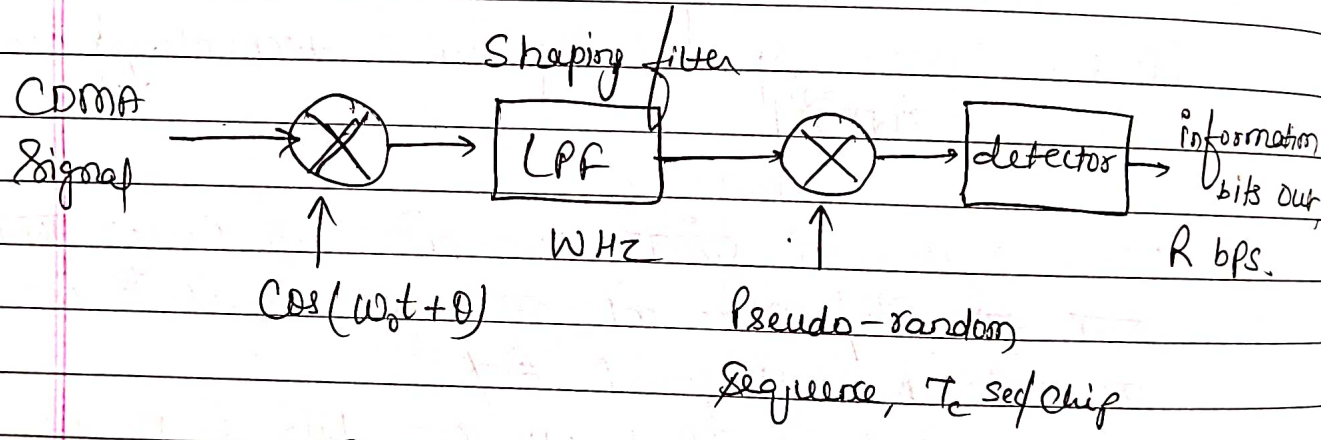 Shaping filter
CDMA
Signal
LPF
detector
information
bits out,
R bps.
W HZ
Cos(ω₀t+θ)
Pseudo-random
Sequence, Tc sec/chip